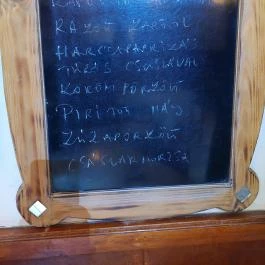 RAKOTT KARFIOL
HARCSAPAPRIKÁS
TÚRÓS CSUSZÁVAL
KÖRÖM PÖRKÖLT
PIRÍTOTT MÁJ
ZÚZAPÖRKÖLT
CSÁSZÁRMORZSA